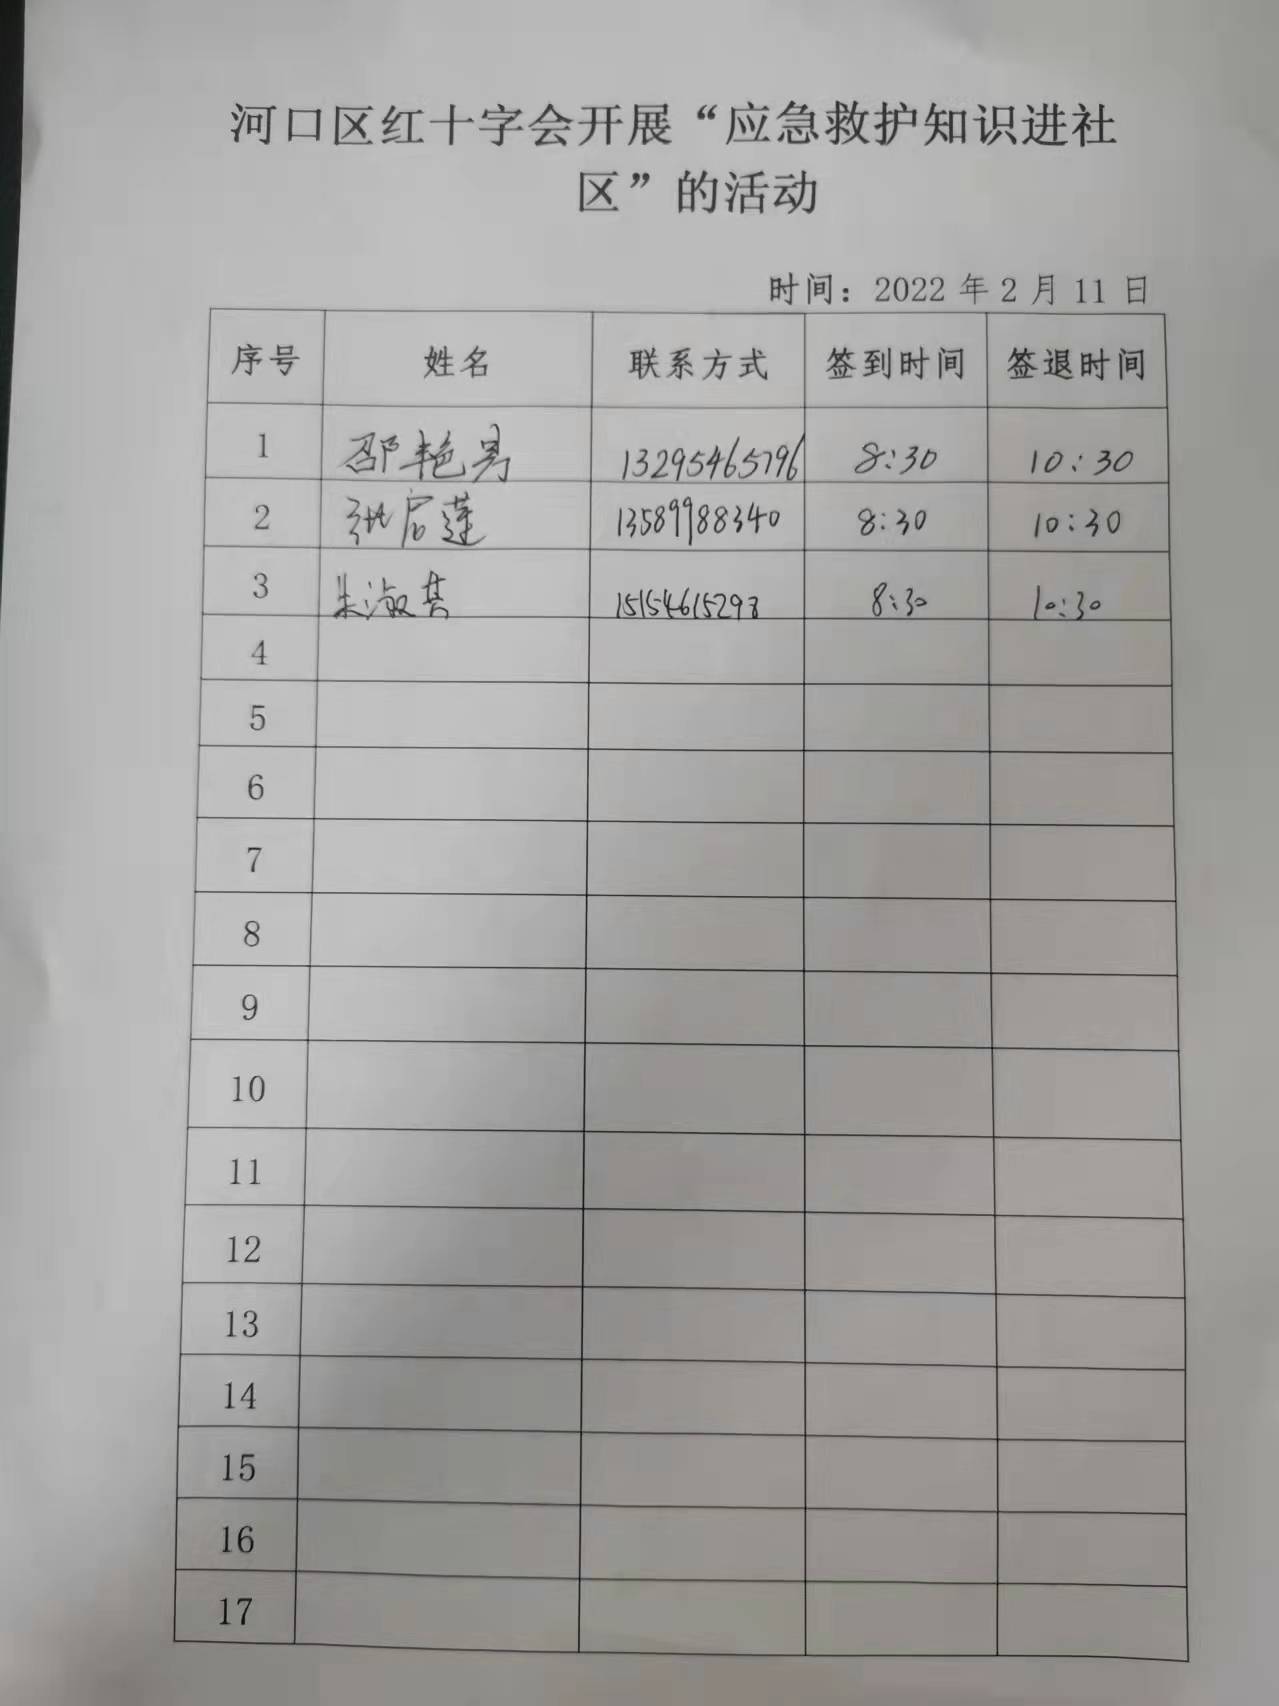 河口区红十字会开展“应急救护知识进社
区”的活动
时间：2022 年 2 月 11 日
序号 姓名 联系方式 签到时间 签退时间
1 邵艳男 13295465796 8:30 10:30
2 张启莲 13589988340 8:30 10:30
3 朱淑其 15154615298 8:30 10:30
4
5
6
7
8
9
10
11
12
13
14
15
16
17